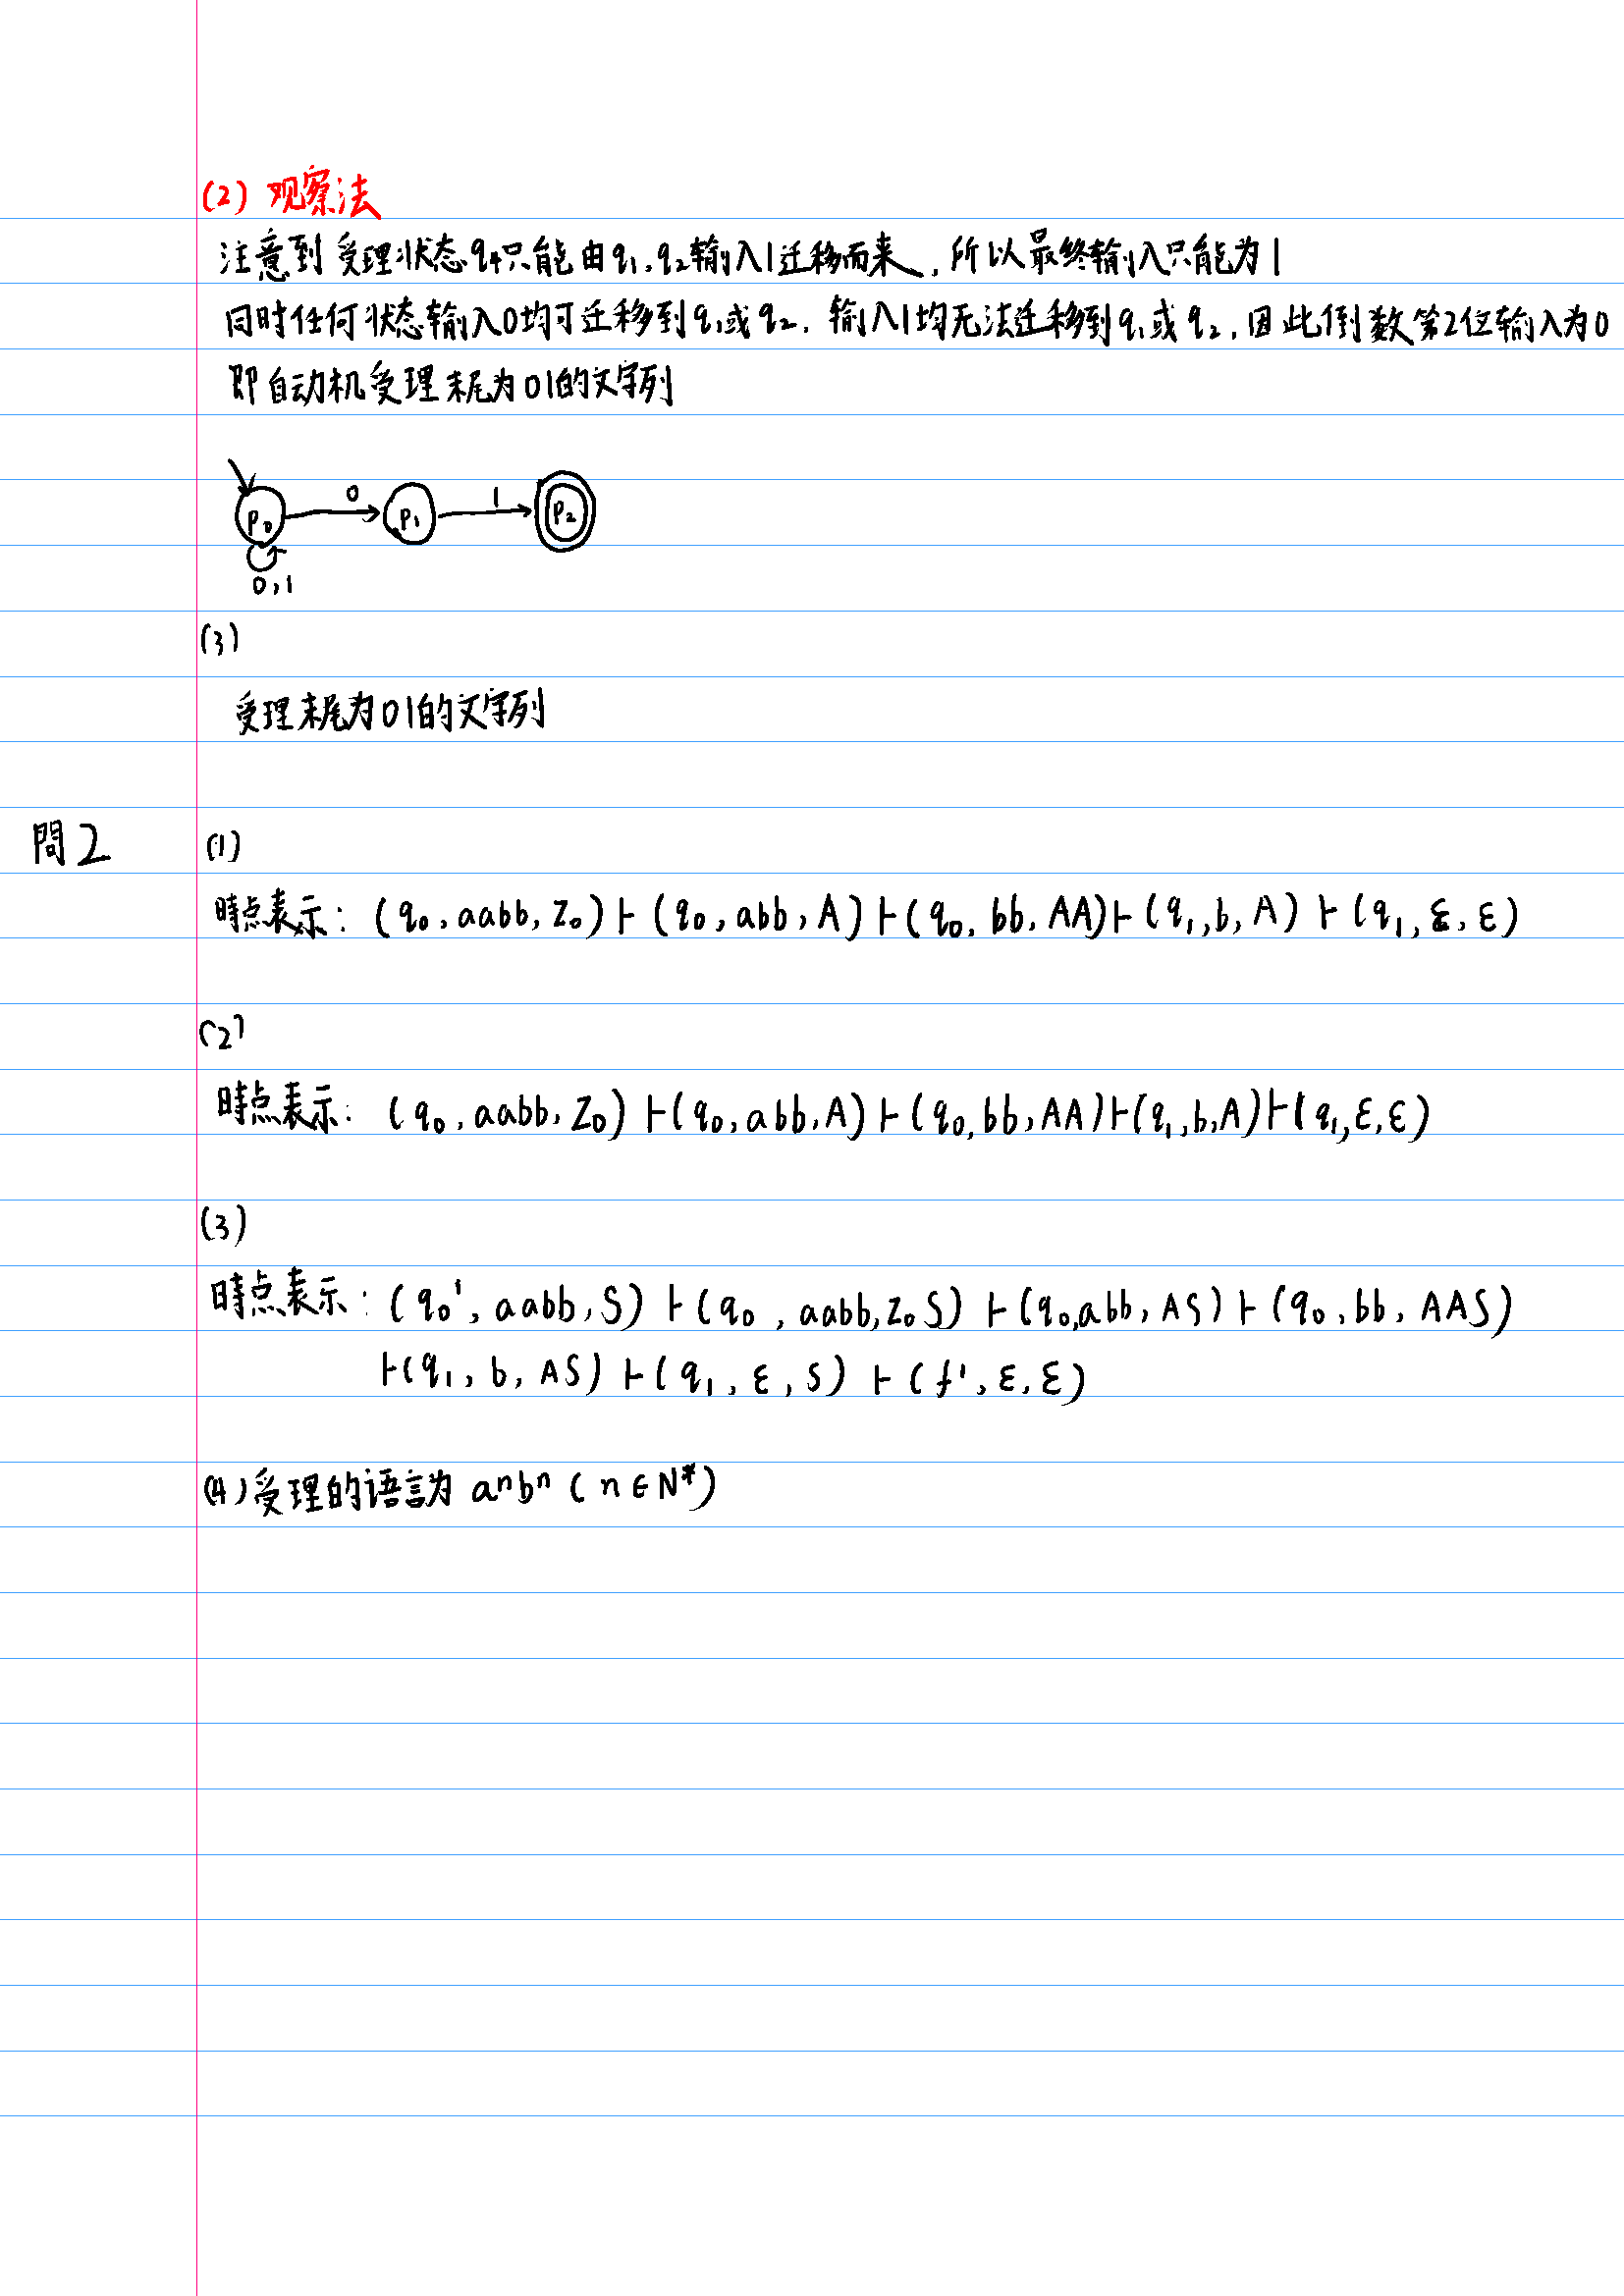 (2) 观察法
注意到受理状态q₄只能由q₁,q₂输入1迁移而来,所以最终输入只能为1
同时任何状态输入0均可迁移到q₁或q₂,输入1均无法迁移到q₁或q₂,因此倒数第2位输入为0
即自动机受理末尾为01的文字列
p₀ 0 p₁ 1 p₂
0,1
(3)
受理末尾为01的文字列
問2 (1)
時点表示: (q₀, aabb, Z₀)⊢(q₀, abb, A)⊢(q₀, bb, AA)⊢(q₁, b, A)⊢(q₁, ε, ε)
(2)
時点表示: (q₀, aabb, Z₀)⊢(q₀, abb, A)⊢(q₀, bb, AA)⊢(q₁, b, A)⊢(q₁, ε, ε)
(3)
時点表示: (q₀', aabb, S)⊢(q₀, aabb, Z₀S)⊢(q₀, abb, AS)⊢(q₀, bb, AAS)
⊢(q₁, b, AS)⊢(q₁, ε, S)⊢(f', ε, ε)
(4)受理的语言为 aⁿbⁿ (n∈N*)